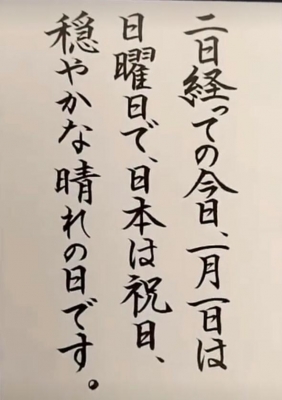 二日経っての今日、一月一日は
日曜日で、日本は祝日、
穏やかな晴れの日です。